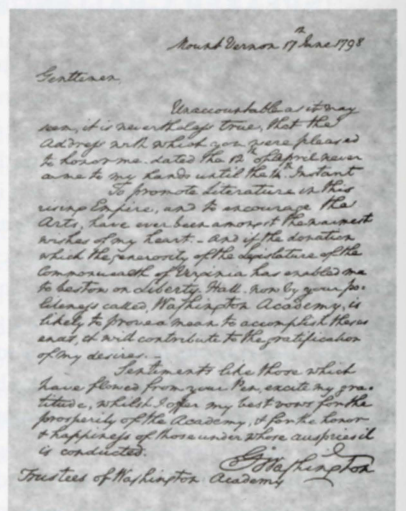 Mount Vernon 17th June 1798
Gentlemen
Unaccountable as it may
seem, it is nevertheless true, that the
Address with which you were pleased
to honor me dated the 12th of April never
came to my hands until the 14th Instant
To promote Literature in this
rising Empire, and to encourage the
Arts, have ever been amongst the warmest
wishes of my heart. - And if the donation
which the generosity of the Legislature of the
Commonwealth of Virginia has enabled me
to bestow on Liberty Hall - now by your po-
liteness called, Washington Academy, is
likely to prove a mean to accomplish these
ends, it will contribute to the gratification
of my desires. -
Sentiments like those which
have flowed from your Pen, excite my gra-
titude, whilst I offer my best vows for the
prosperity of the Academy, & for the honor
& happiness of those under whose auspices it
is conducted.
Go: Washington
Trustees of Washington Academy